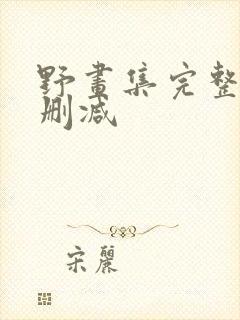 野畫集完整
刪减
宋麗